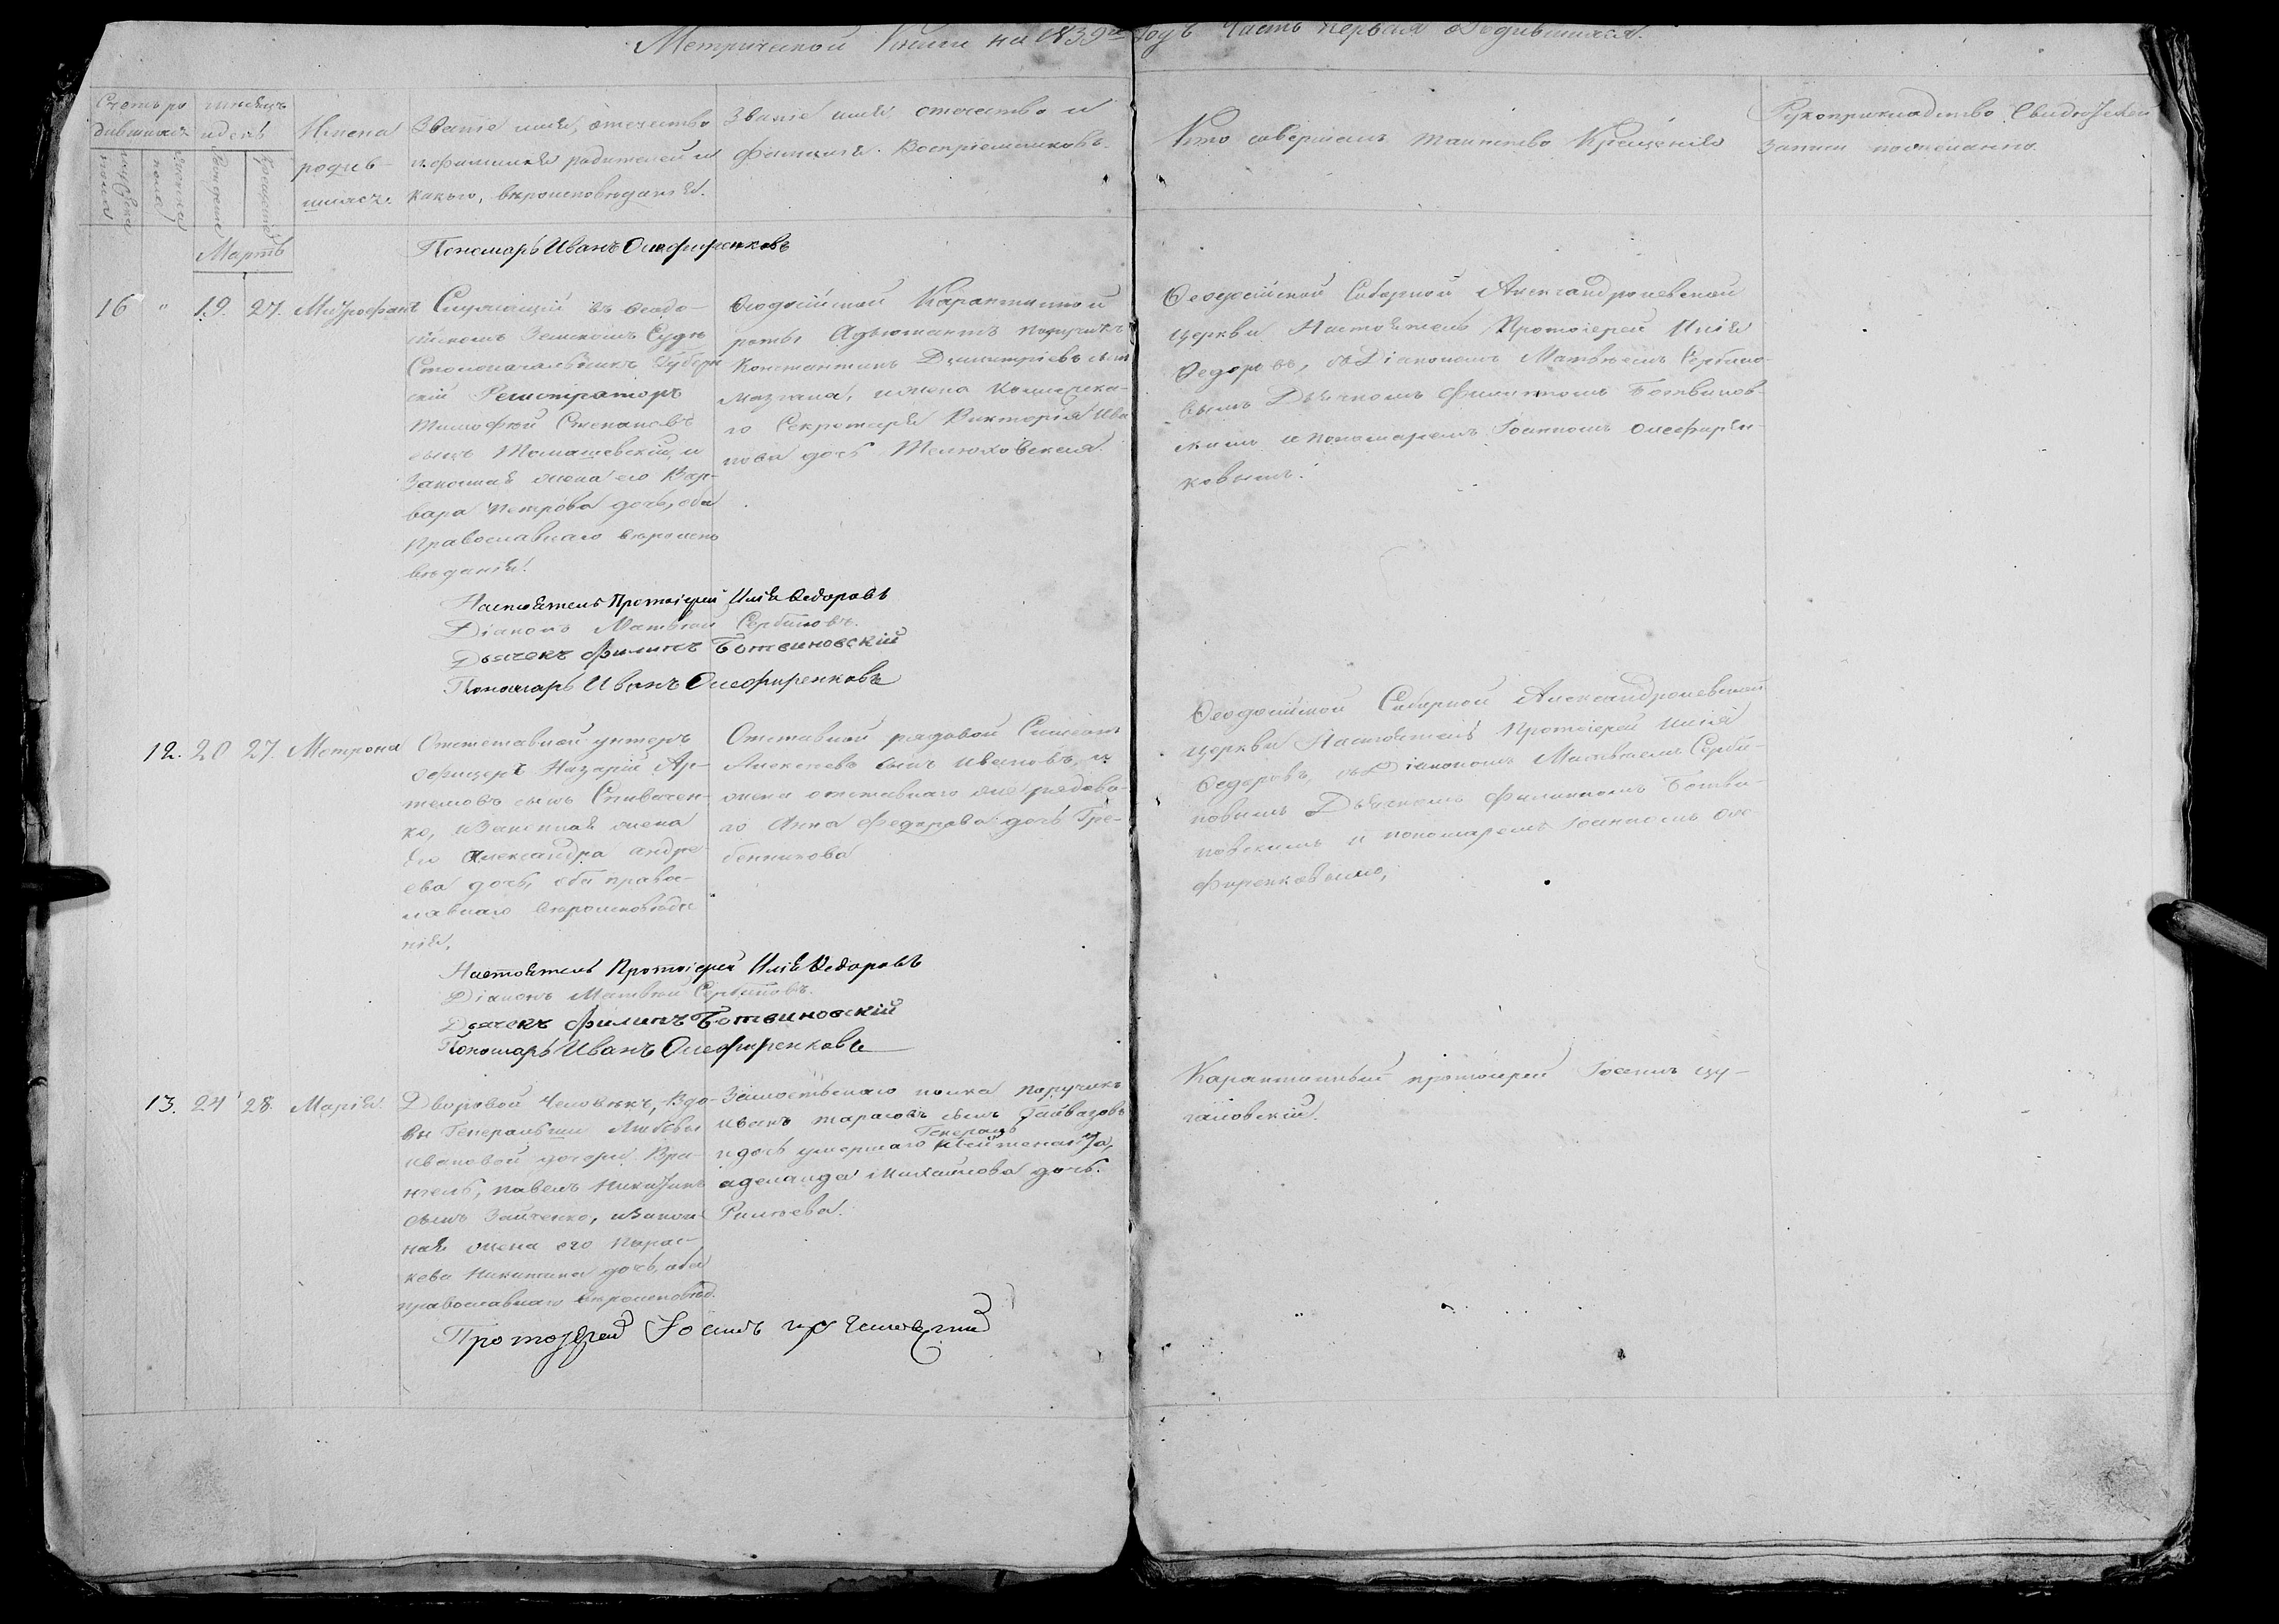 Метрической Книги на 1839й Годъ Часть первая о Родившихся.
Счетъ ро
дившихся
мужеска
пола
женска
пола
мѣсяцъ
и день
Рожденія
Крещенія
Имена
родив-
шихся.
Званіе имя, отечество
и фамилія родителей и
какого, вѣроисповѣданія.
Званіе имя, отечество и
фамилія. Воспріемниковъ.
Кто совершалъ таинство Крещенія
Рукоприкладство Свидѣтелей
записи по желанію.
Мартъ
Пономарь Иванъ Олефиренковъ
16 " 19. 27. Митрофанъ
Служащій въ Ѳеодо-
сійскомъ Земскомъ Судѣ
Столоначальникъ Губерн
скій Регистраторъ
Тимофей Степановъ
сынъ Томашевскій, и
Законная жена его Вар-
вара Петрова дочь, оба
Православнаго вѣроиспо
вѣданія.
Ѳеодосійской Карантинной
роты Адъютантъ Поручикъ
Константинъ Димитріевъ сынъ
Мазгана, и жена Коллежска-
го Секретаря Викторія Ива
нова дочь Телюховская.
Ѳеодосійской Соборной Александроневской
церкви Настоятель Протоіерей Илія
Ѳедоровъ, съ Діакономъ Матвѣемъ Сербино-
вымъ Дьячкомъ Филиппомъ Ботвинов-
скимъ и пономаремъ Іоанномъ Олефирен-
ковымъ.
Настоятель Протоіерей Илія Ѳедоровъ
Діаконъ Матвей Сербиновъ.
Дьячекъ Филипъ Ботвиновскій
Пономарь Иванъ Олефиренковъ
12. 20 27. Матрона
Отставной унтеръ
офицеръ Назарій Ар-
темовъ сынъ Спиваchен-
ко, и Законная жена
его Александра Андре-
ева дочь, оба право-
славнаго вѣроисповѣда
нія.
Отставной рядовой
Алексѣевъ сынъ Ивановъ, и
жена отставнаго же рядова-
го Анна Федорова дочь Гре-
бенникова
Ѳеодосійской Соборной Александроневской
церкви Настоятель Протоіерей Илія
Ѳедоровъ, съ Діакономъ Матвѣемъ Серби-
новымъ Дьячкомъ Филиппомъ Ботви-
новскимъ и пономаремъ Іоанномъ Оле-
фиренковымъ,
Настоятель Протоіерей Илія Ѳедоровъ
Діаконъ Матвей Сербиновъ.
Дьячекъ Филипъ Ботвиновскій
Пономарь Иванъ Олефиренковъ
13. 24 28. Марія
Дворовой Человѣкъ, Вдо-
вы Генеральши Любовы
Ивановой дочери Вра-
нгель, Павелъ Никитинъ
сынъ Зайченко, и Закон
ная жена его Парас-
кева Никитина дочь, оба
православнаго вѣроисповѣд.
Замостьскаго полка Поручикъ
Иванъ Тарасовъ сынъ Гайвазовъ
и дочь умершаго Генералъ Лейтенанта,
Аделаида Михайлова дочь.
Рыльева.
Карантинный протоіерей Іоаннъ Цу-
гановскій.
Протоіерей Іоаннъ